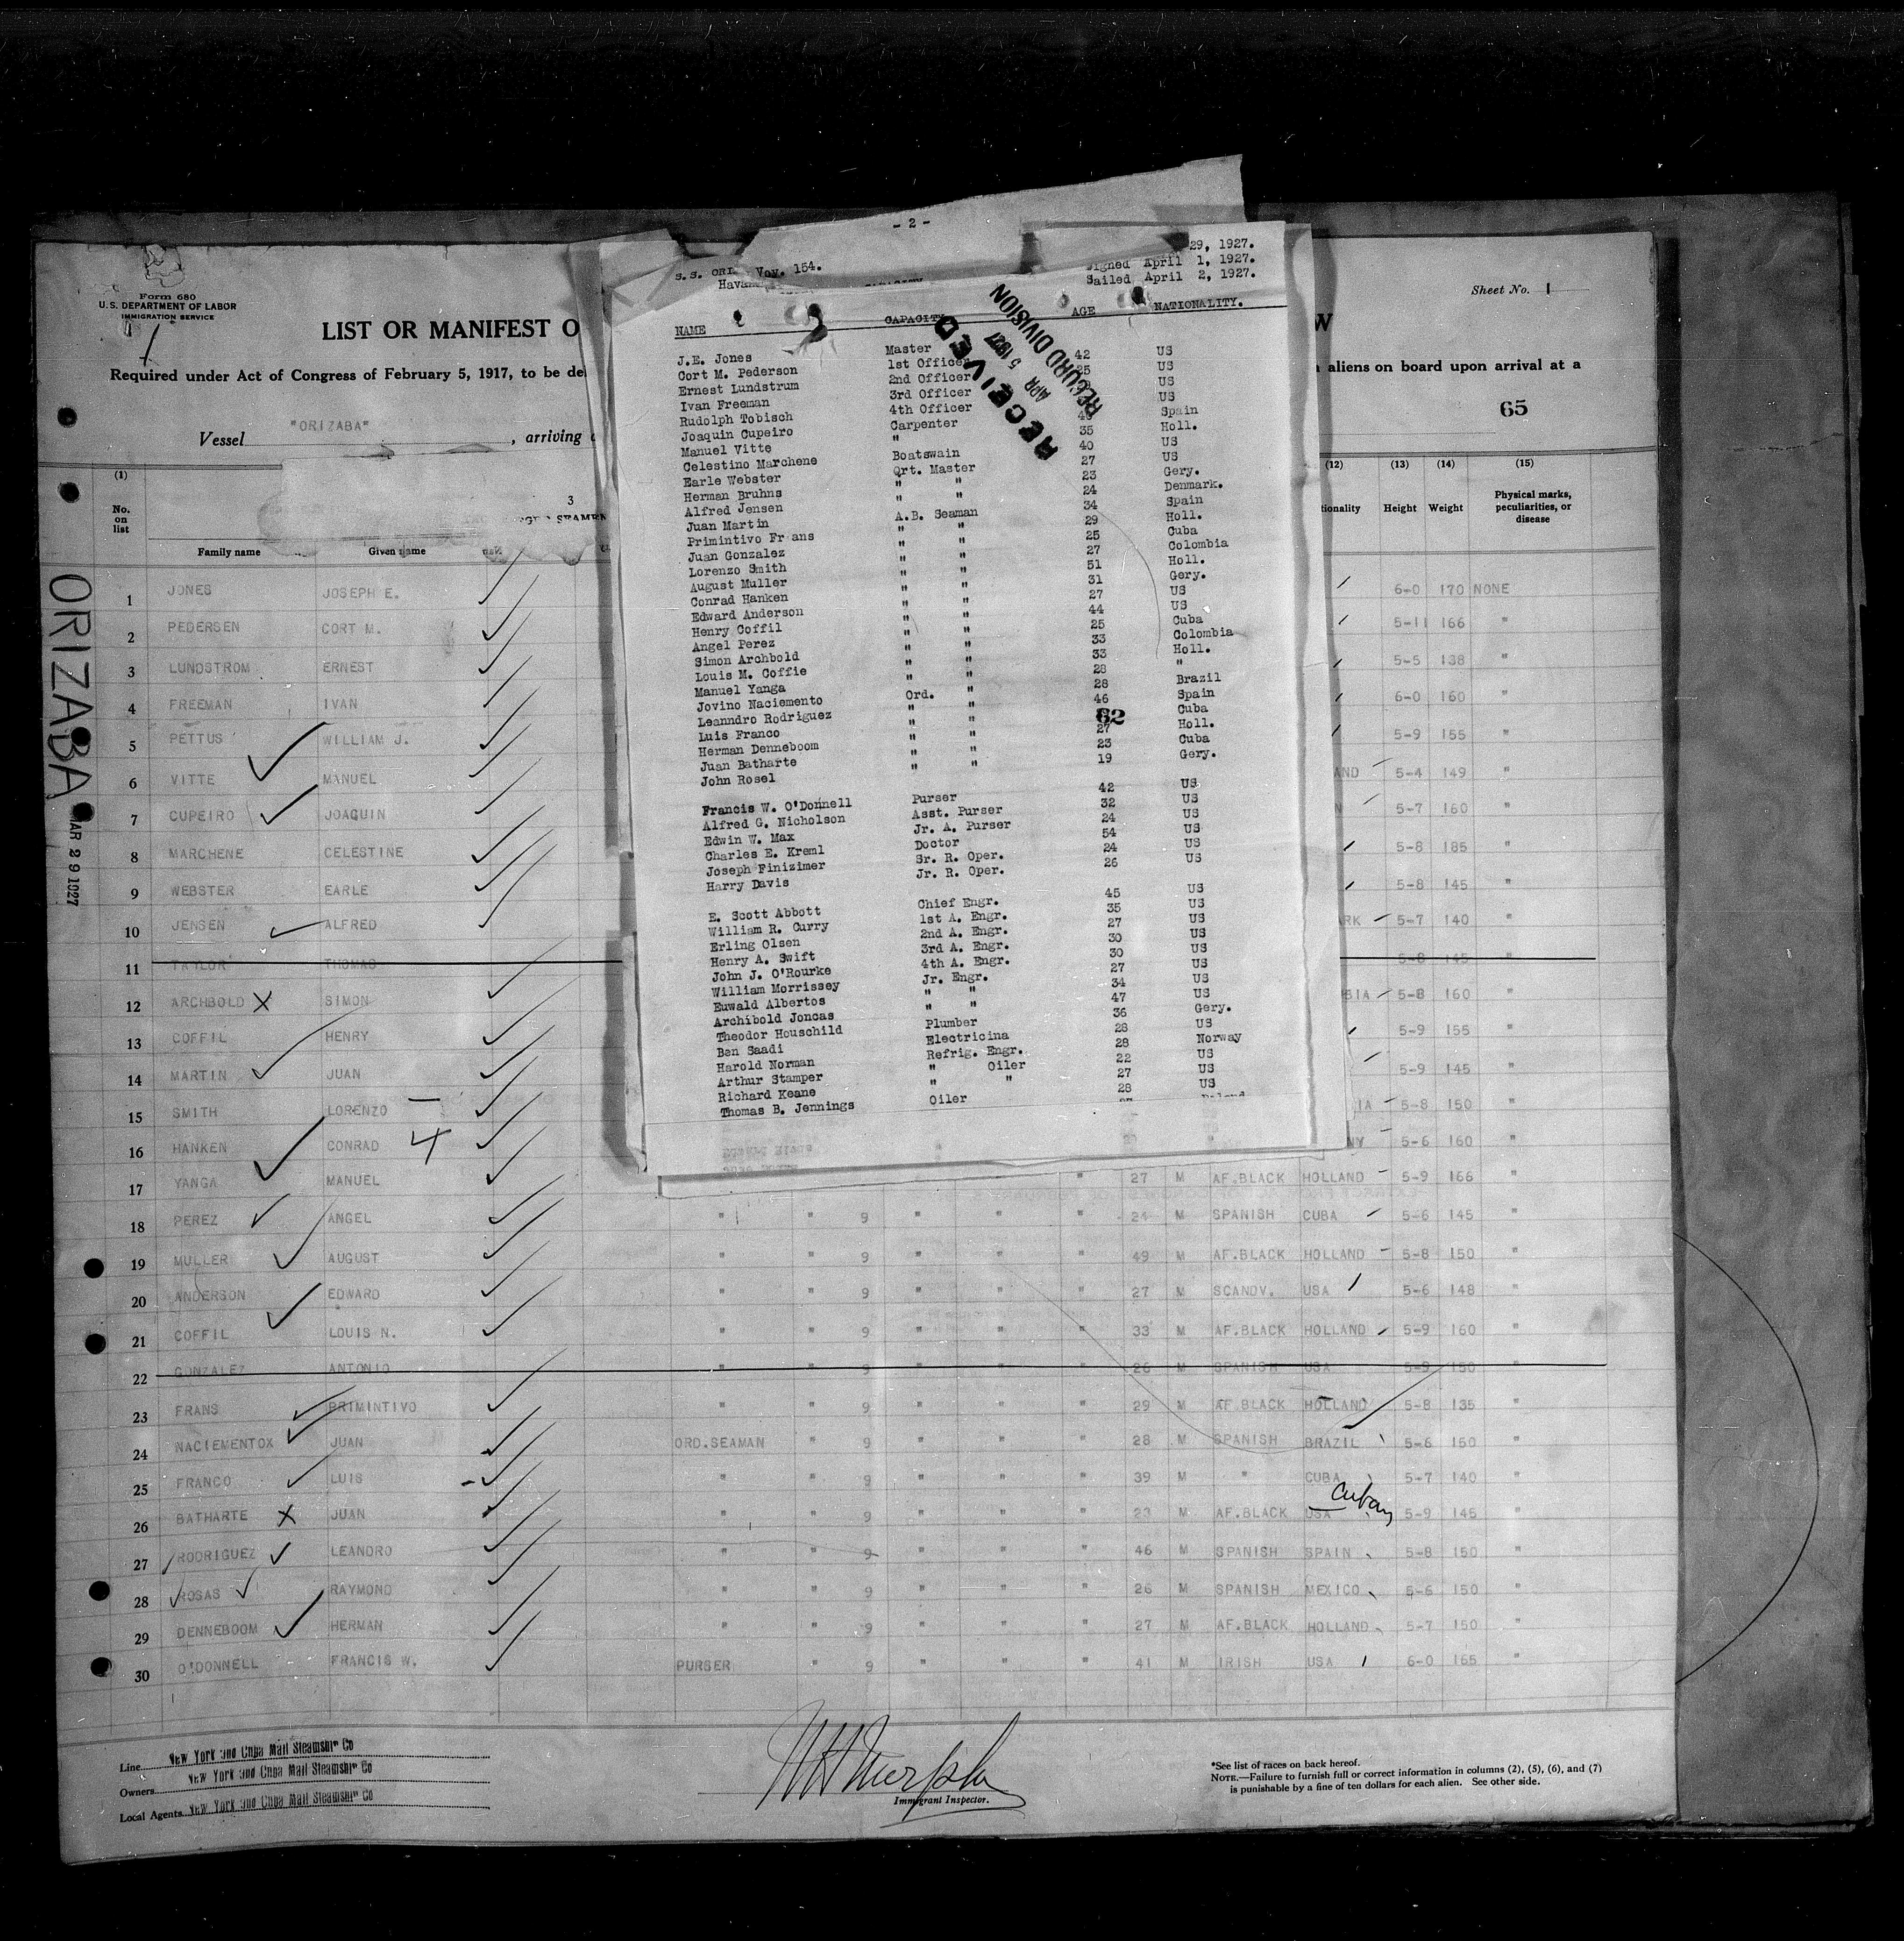 - 2 -
Form 680
U.S. DEPARTMENT OF LABOR
IMMIGRATION SERVICE
Sheet No. 1
LIST OR MANIFEST O
W
Required under Act of Congress of February 5, 1917, to be de
aliens on board upon arrival at a
65
Vessel "ORIZABA", arriving
ORIZABA
MAR 29 1927
(1)
No. on list
3
Family name Given name
(12) (13) (14) (15)
Height Weight Physical marks, peculiarities, or disease
1 JONES JOSEPH E. 6-0 170 NONE
2 PEDERSEN CORT M. 5-11 166 "
3 LUNDSTROM ERNEST 5-5 138 "
4 FREEMAN IVAN 6-0 160 "
5 PETTUS WILLIAM J. 5-9 155 "
6 VITTE MANUEL AND 5-4 149 "
7 CUPEIRO JOAQUIN N 5-7 160 "
8 MARCHENE CELESTINE 5-8 185 "
9 WEBSTER EARLE 5-8 145 "
10 JENSEN ALFRED ARK 5-7 140 "
11 TAYLOR THOMAS 5-8 145 "
12 ARCHBOLD X SIMON BIA 5-8 160 "
13 COFFIL HENRY 5-9 155 "
14 MARTIN JUAN 5-9 145 "
15 SMITH LORENZO IA 5-8 150 "
16 HANKEN CONRAD 4 NY 5-6 160 "
17 YANGA MANUEL 27 M AF.BLACK HOLLAND 5-9 166 "
18 PEREZ ANGEL " " 9 " " " 24 M SPANISH CUBA 5-6 145 "
19 MULLER AUGUST " " 9 " " " 49 M AF.BLACK HOLLAND 5-8 150 "
20 ANDERSON EDWARD " " 9 " " " 27 M SCANDV. USA 5-6 148 "
21 COFFIL LOUIS N. " " 9 " " " 33 M AF.BLACK HOLLAND 5-9 160 "
22 GONZALEZ ANTONIO " " 9 " " " 26 M SPANISH USA 5-9 150 "
23 FRANS PRIMINTIVO " " 9 " " " 29 M AF.BLACK HOLLAND 5-8 135 "
24 NACIEMENTOX JUAN ORD.SEAMAN " 9 " " " 28 M SPANISH BRAZIL 5-6 150 "
25 FRANCO LUIS " " 9 " " " 39 M " CUBA 5-7 140 "
26 BATHARTE X JUAN " " 9 " " " 23 M AF.BLACK USA Cuban 5-9 145 "
27 RODRIGUEZ LEANDRO " " 9 " " " 46 M SPANISH SPAIN 5-8 150 "
28 ROSAS RAYMOND " " 9 " " " 26 M SPANISH MEXICO 5-6 150 "
29 DENNEBOOM HERMAN " " 9 " " " 27 M AF.BLACK HOLLAND 5-7 150 "
30 O'DONNELL FRANCIS W. PURSER " 9 " " " 41 M IRISH USA 6-0 165 "
Line New York and Cuba Mail Steamship Co
Owners New York and Cuba Mail Steamship Co
Local Agents New York and Cuba Mail Steamship Co
Immigrant Inspector.
*See list of races on back hereof.
NOTE.—Failure to furnish full or correct information in columns (2), (5), (6), and (7)
is punishable by a fine of ten dollars for each alien. See other side.
S.S. ORI Voy. 154.
Havan
29, 1927.
Signed April 1, 1927.
Sailed April 2, 1927.
RECEIVED
APR 5 1927
RECORD DIVISION
NAME CAPACITY AGE NATIONALITY.
J.E. Jones Master 42 US
Cort M. Pederson 1st Officer 25 US
Ernest Lundstrum 2nd Officer US
Ivan Freeman 3rd Officer US
Rudolph Tobisch 4th Officer
Joaquin Cupeiro Carpenter Spain
Manuel Vitte " 35 Holl.
Celestino Marchene Boatswain 40 US
Earle Webster Qrt. Master 27 US
Herman Bruhns " " 23 Gery.
Alfred Jensen " " 24 Denmark.
Juan Martin A.B. Seaman 34 Spain
Primintivo Frans " " 29 Holl.
Juan Gonzalez " " 25 Cuba
Lorenzo Smith " " 27 Colombia
August Muller " " 51 Holl.
Conrad Hanken " " 31 Gery.
Edward Anderson " " 27 US
Henry Coffil " " 44 US
Angel Perez " " 25 Cuba
Simon Archbold " " 33 Colombia
Louis M. Coffie " " 33 Holl.
Manuel Yanga " " 28 "
Jovino Naciemento Ord. " 28 Brazil
Leanndro Rodriguez " " 46 Spain
Luis Franco " " Cuba
62
Herman Denneboom " " 27 Holl.
Juan Batharte " " 23 Cuba
John Rosel " " 19 Gery.
Francis W. O'Donnell Purser 42 US
Alfred G. Nicholson Asst. Purser 32 US
Edwin W. Max Jr. A. Purser 24 US
Charles E. Kreml Doctor 54 US
Joseph Finizimer Sr. R. Oper. 24 US
Harry Davis Jr. R. Oper. 26 US
E. Scott Abbott Chief Engr. 45 US
William R. Curry 1st A. Engr. 35 US
Erling Olsen 2nd A. Engr. 27 US
Henry A. Swift 3rd A. Engr. 30 US
John J. O'Rourke 4th A. Engr. 30 US
William Morrissey Jr. Engr. 27 US
Euwald Albertos " " 34 US
Archibold Joncas " " 47 US
Theodor Houschild Plumber 36 Gery.
Ben Saadi Electricina 28 US
Harold Norman Refrig. Engr. 28 Norway
Arthur Stamper " Oiler 22 US
Richard Keane " " 27 US
Thomas B. Jennings Oiler 28 US